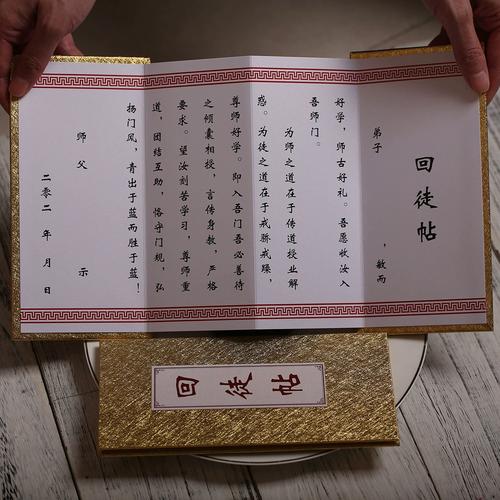 回徒帖
弟子　　　，敏而
好学，师古好礼。吾愿收汝入
吾师门。
为师之道在于传道授业解
惑。为徒之道在于戒骄戒躁，
尊师好学。即入吾门吾必善待
之倾囊相授，言传身教，严格
要求。望汝刻苦学习，尊师重
道，团结互助，恪守门规，弘
扬门风，青出于蓝而胜于蓝！
师父　　　示
二零二 年 月 日
回徒帖